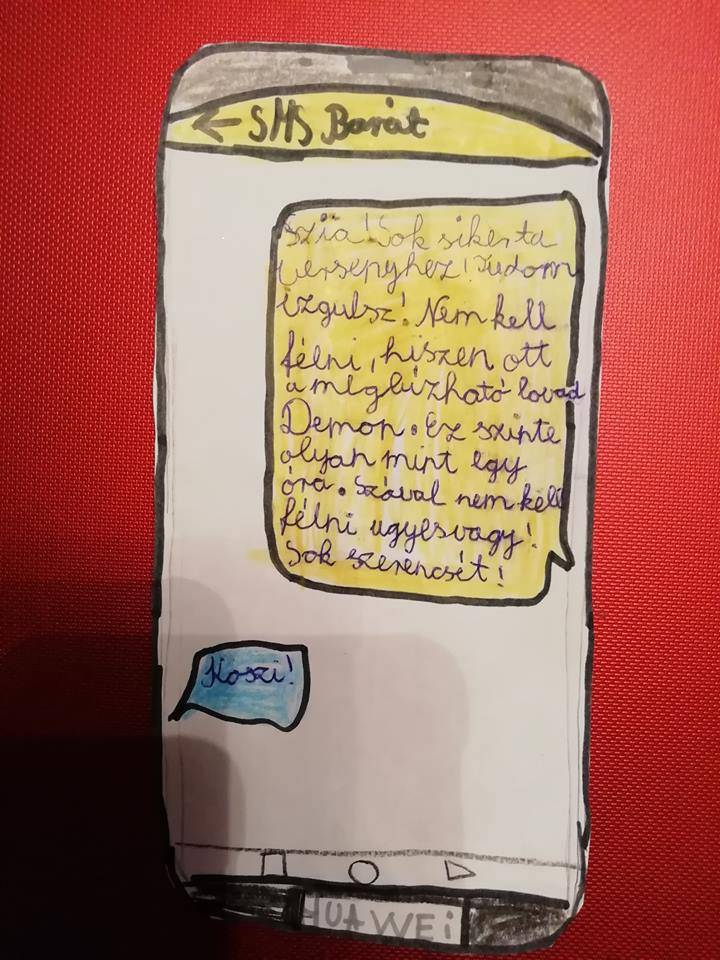 ← SMS Barát
Szia! Sok sikert a
versenyhez! Tudom
izgulsz! Nem kell
félni, hiszen ott
a megbízható lovad
Demon. Ez szinte
olyan mint egy
óra. Szóval nem kell
félni ugyesvagy!
Sok szerencsét!
Koszi!
HUAWEi